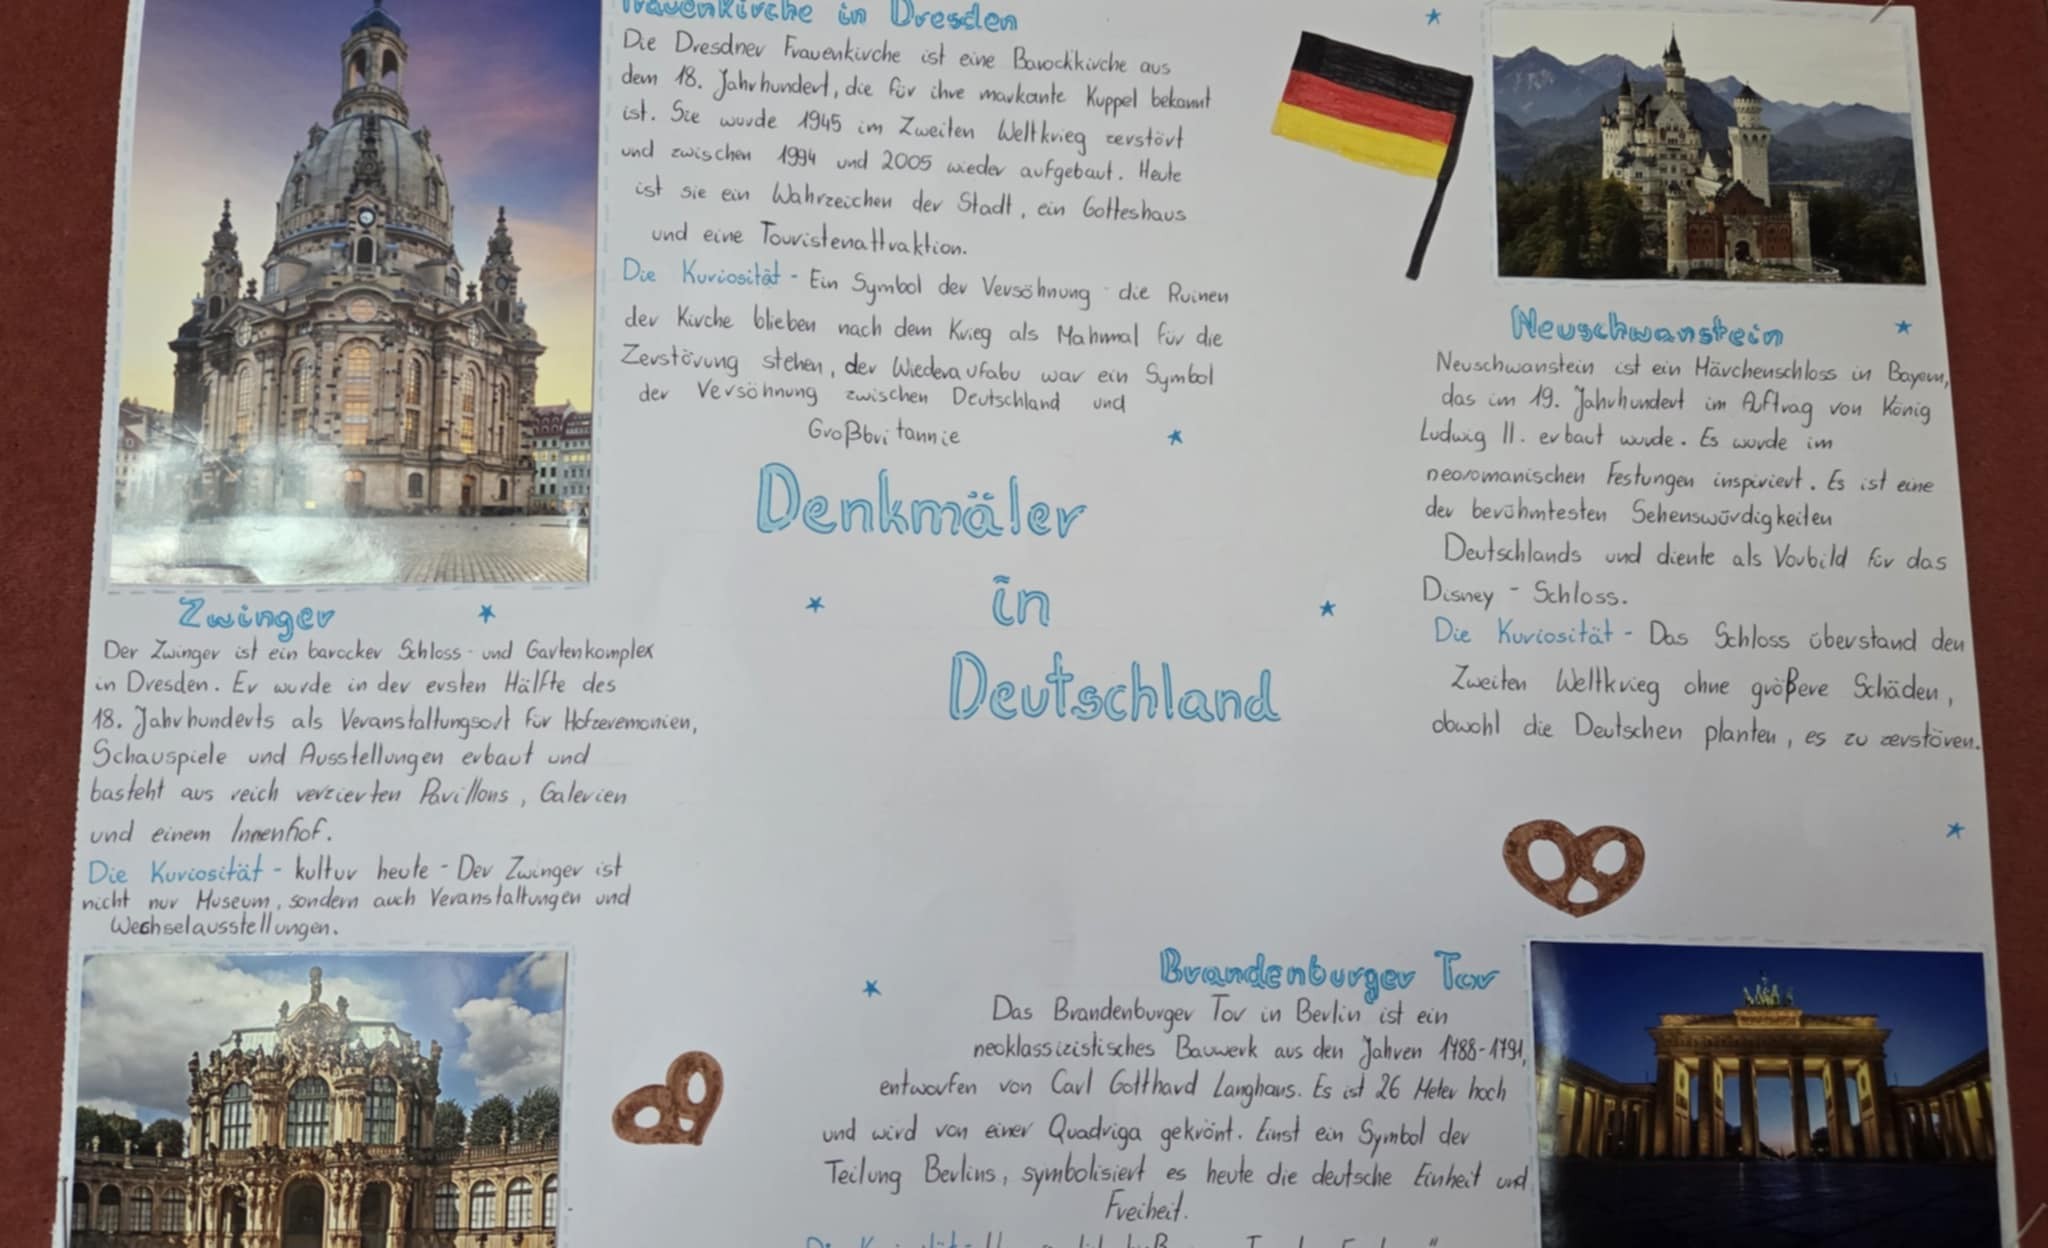 Frauenkirche in Dresden
Die Dresdner Frauenkirche ist eine Barockkirche aus
dem 18. Jahrhundert, die für ihre markante Kuppel bekannt
ist. Sie wurde 1945 im Zweiten Weltkrieg zerstört
und zwischen 1994 und 2005 wieder aufgebaut. Heute
ist sie ein Wahrzeichen der Stadt, ein Gotteshaus
und eine Touristenattraktion.
Die Kuriosität - Ein Symbol der Versöhnung - die Ruinen
der Kirche blieben nach dem Krieg als Mahnmal für die
Zerstörung stehen, der Wiederaufabu war ein Symbol
der Versöhnung zwischen Deutschland und
Großbritannie
Denkmäler
in
Deutschland
Neuschwanstein
Neuschwanstein ist ein Märchenschloss in Bayern,
das im 19. Jahrhundert im Auftrag von König
Ludwig II. erbaut wurde. Es wurde im
neoromanischen Festungen inspiriert. Es ist eine
der berühmtesten Sehenswürdigkeiten
Deutschlands und diente als Vorbild für das
Disney - Schloss.
Die Kuriosität - Das Schloss überstand den
Zweiten Weltkrieg ohne größere Schäden,
obwohl die Deutschen planten, es zu zerstören.
Zwinger
Der Zwinger ist ein barocker Schloss- und Gartenkomplex
in Dresden. Er wurde in der ersten Hälfte des
18. Jahrhunderts als Veranstaltungsort für Hofzeremonien,
Schauspiele und Ausstellungen erbaut und
basteht aus reich verzierten Pavillons, Galerien
und einem Innenhof.
Die Kuriosität - kultur heute - Der Zwinger ist
nicht nur Museum, sondern auch Veranstaltungen und
Wechselausstellungen.
Brandenburger Tor
Das Brandenburger Tor in Berlin ist ein
neoklassizistisches Bauwerk aus den Jahren 1788-1791,
entworfen von Carl Gotthard Langhaus. Es ist 26 Meter hoch
und wird von einer Quadriga gekrönt. Einst ein Symbol der
Teilung Berlins, symbolisiert es heute die deutsche Einheit und
Freiheit.